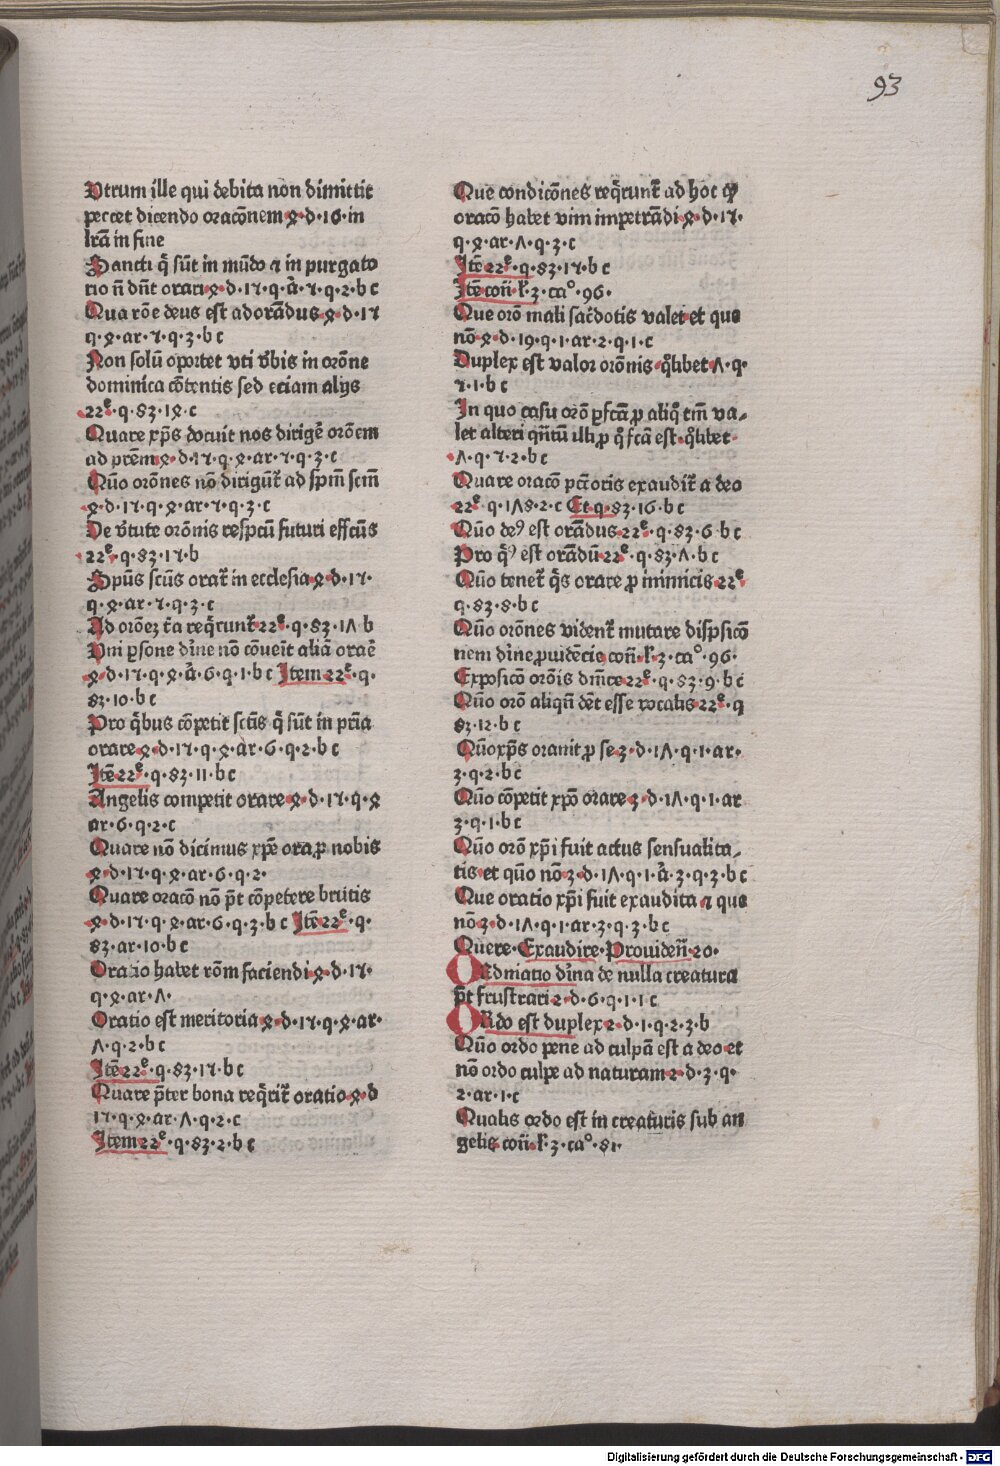 93
Vtrum ille qui debita non dimittit
peccet dicendo oracōnem·4·d·16·in
lrā in fine
Sancti q̄ sūt in mūdo ⁊ in purgato
rio n̄ dn̄t orari·4·d·17·q·ā·7·q·2·b c
Qua rōe deus est adorādus·4·d·17
q·4·ar·7·q·3·b c
Non solū oportet vti v̄bis in orōne
dominica cōtentis sed eciam alijs
22ᵉ·q·83·14·c
Quare xp̄s docuit nos dirigē orōem
ad prēm·4·d·17·q·4·ar·7·q·3·c
Qūo orōnes nō dirigūt᷑ ad sp̄m scm̄
4·d·17·q·4·ar·7·q·3·c
De v̄tute orōnis respcū futuri effcūs
22ᵉ·q·83·17·b
Spūs scūs orat᷑ in ecclesia·4·d·17·
q·4·ar·7·q·3·c
Ad orōeꝫ t̄a req̄runt᷑·22ᵉ·q·83·1Λ b
Vni ꝑsone dīne nō cōueīt aliā oraē
4·d·17·q·4·ā·6·q·1·b c Item 22ᵉ·q·
83·10·b c
Pro q̄bus cōpetit sctīs q̄ sūt in pr̄ia
orare·4·d·17·q·4·ar·6·q·2·b c
Itē 22ᵉ·q·83·11·b c
Angelis competit orare·4·d·17·q·4
ar·6·q·2·c
Quare nō dicimus xp̄e ora ꝓ nobis
4·d·17·q·4·ar·6·q·2·
Quare oracō nō pt̄ cōpetere brutis
4·d·17·q·4·ar·6·q·3·b c Itē 22ᵉ·q·
83·ar·10·b c
Oratio habet rōm faciendi·4·d·17·
q·4·ar·Λ·
Oratio est meritoria·4·d·17·q·4·ar·
Λ·q·2·b c
Itē 22ᵉ·q·83·17·b c
Quare p̄ter bona req̄rit᷑ oratio·4·d
17·q·4·ar·Λ·q·2·c
Item 22ᵉ·q·83·2·b c
Que condicōnes req̄runt᷑ ad hoc ꝙ
oracō habet vim impetrādi·4·d·17·
q·4·ar·Λ·q·3·c
Itē 22ᵉ·q·83·17·b c
Itē con̄·l᷑·3·ca°·96·
Que orō mali sac̄dotis valet et que
nō·4·d·19·q·1·ar·2·q·1·c
Duplex est valor orōnis·q̊libet Λ·q·
7·1·b c
In quo casu orō ꝑfcā ꝓ aliq̊ tm̄ va⸗
let alteri qn̄tū illi ꝓ q̊ fcā est·q̊libet·
Λ·q·7·2·b c
Quare oracō pctōris exaudit᷑ a deo
22ᵉ·q·1Λ8·2·c Et q·83·16·b c
Qūo deꝰ est orādus·22ᵉ·q·83·6·b c
Pro qꝰ est orādū·22ᵉ·q·83·Λ·b c
Qūo tenet᷑ q̄s orare ꝓ inimicis·22ᵉ
q·83·8·b c
Qūo orōnes vident᷑ mutare disp̄sicō
nem dīne ꝓuidencie·con̄·l᷑·3·ca°·96·
Exposicō orōis dn̄ice·22ᵉ·q·83·9·b c
Qūo orō aliqn̄ dēt esse vocalis·22ᵉ·q
83·12·b c
Qūo xp̄s orauit ꝓ se·3·d·1Λ·q·1·ar·
3·q·2·b c
Qūo cōpetit xp̄o orare·3·d·1Λ·q·1·ar
3·q·1·b c
Qūo orō xp̄i fuit actus sensualita⸗
tis et qūo nō·3·d·1Λ·q·1·ā·3·q·3·b c
Que oratio xp̄i fuit exaudita ⁊ que
nō·3·d·1Λ·q·1·ar·3·q·3·b c
Quere·Exaudire·Prouiden̄·20·
ORdinatio dīna de nulla creatura
pt̄ frustrari·2·d·6·q·1·1·c
ORdo est duplex·2·d·1·q·2·3·b
Qūo ordo pene ad culpā est a deo et
nō ordo culpe ad naturam·2·d·3·q·
2·ar·1·c
Qualis ordo est in creaturis sub an
gelis·con̄·l᷑·3·ca°·81·
Digitalisierung gefördert durch die Deutsche Forschungsgemeinschaft · DFG